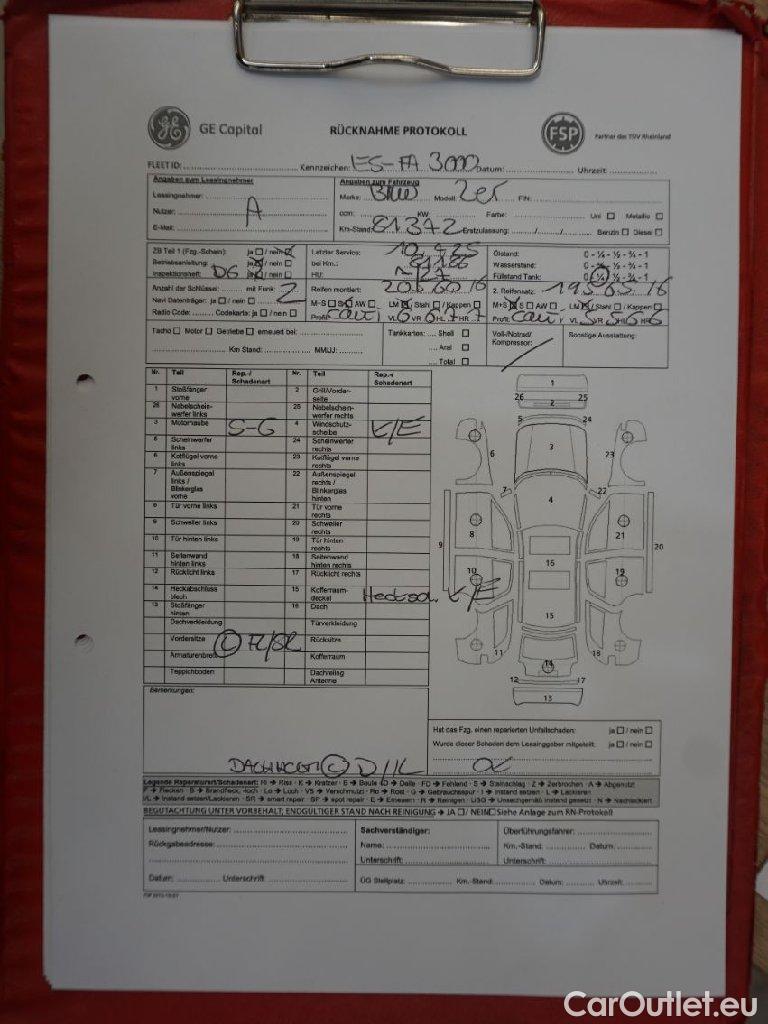 GE Capital
RÜCKNAHME PROTOKOLL
FSP
Partner des TÜV Rheinland
FLEET ID: Kennzeichen: ES-FA 3000 Datum: Uhrzeit:
Angaben zum Leasingnehmer
Angaben zum Fahrzeug
Leasingnehmer:
Marke: BMW Modell: 2er FIN:
Nutzer: A
ccm: KW Farbe: Uni Metallic
E-Mail:
Km-Stand: 81372 Erstzulassung: Benzin Diesel
ZB Teil 1 (Fzg.-Schein): ja / nein
Betriebsanleitung: ja / nein
Inspektionsheft: DS ja / nein
Letzter Service:
bei Km.:
HU:
Ölstand: 0 - ¼ - ½ - ¾ - 1
Wasserstand: 0 - ¼ - ½ - ¾ - 1
Füllstand Tank: 0 - ¼ - ½ - ¾ - 1
Anzahl der Schlüssel: mit Funk: 2
Navi Datenträger: ja / nein
Radio Code: Codekarte: ja / nein
Reifen montiert: 205 60 16
M+S S AW LM / Stahl / Kappen
Profil: Conti VL 6 VR 6 HL 7 HR 7
2. Reifensatz: 195 65 16
M+S S AW LM / Stahl / Kappen
Profil: Conti VL 5 VR 5 HL 6 HR 6
Tacho Motor Getriebe erneuert bei:
Km Stand: MM/JJ:
Tankkarten: Shell
Aral
Total
Voll-/Notrad/
Kompressor: /
Sonstige Ausstattung:
Nr. Teil Rep.-/ Schadenart Nr. Teil Rep.-/ Schadenart
1 Stoßfänger vorne 2 Grill/Vorderseite
26 Nebelscheinwerfer links 25 Nebelscheinwerfer rechts
3 Motorhaube S-G 4 Windschutzscheibe K/E
5 Scheinwerfer links 24 Scheinwerfer rechts
6 Kotflügel vorne links 23 Kotflügel vorne rechts
7 Außenspiegel links / Blinkerglas vorne 22 Außenspiegel rechts / Blinkerglas hinten
8 Tür vorne links 21 Tür vorne rechts
9 Schweller links 20 Schweller rechts
10 Tür hinten links 19 Tür hinten rechts
11 Seitenwand hinten links 18 Seitenwand hinten rechts
12 Rücklicht links 17 Rücklicht rechts
14 Heckabschlussblech 15 Kofferraumdeckel Hecksch. K/E
13 Stoßfänger hinten 16 Dach
Dachverkleidung Türverkleidung
Vordersitze Rücksitze
Armaturenbrett Kofferraum
Teppichboden Dachreling Antenne
Bemerkungen:
Hat das Fzg. einen reparierten Unfallschaden: ja / nein
Wurde dieser Schaden dem Leasinggeber mitgeteilt: ja / nein
Legende Reparaturart/Schadenart: Ri → Riss · K → Kratzer · B → Beule D → Delle · FD → Fehlend · S → Steinschlag · Z → Zerbrochen · A → Abgenutzt
BEGUTACHTUNG UNTER VORBEHALT; ENDGÜLTIGER STAND NACH REINIGUNG → JA / NEIN Siehe Anlage zum RN-Protokoll
Leasingnehmer/Nutzer:
Rückgabeadresse:
Datum: Unterschrift
Sachverständiger:
Name:
Unterschrift:
Überführungsfahrer:
Km.-Stand: Datum:
Unterschrift:
ÜG Stellplatz: Km.-Stand: Datum: Uhrzeit:
CarOutlet.eu